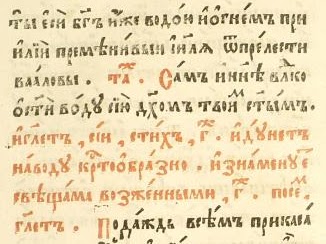 ты̀ є҆сѝ бг҃ъ и҆́же водо́ю и҆ ѻ҆гне́мъ при
и҆лїѝ премѣни́вый і҆и҃лѧ ѿ пре́лести
ваа́ловы . та́ . Са́мъ и҆ нн҃ѣ влⷣко
ѡ҆ст҃и́ во́ду сїю̀ дх҃омъ твои́ⷨ ст҃ы́мъ .
и҆ гл҃етъ , сі́и , сти́хъ , г҃ . и҆ ду́нетъ
на во́ду крⷭ҇тоѻбра́зно . и҆ зна́менꙋетъ
свѣща́ма возже́нными , г҃ . посе́ⷨ
гл҃етъ . Пода́ждь всѣ́мъ прикаса́